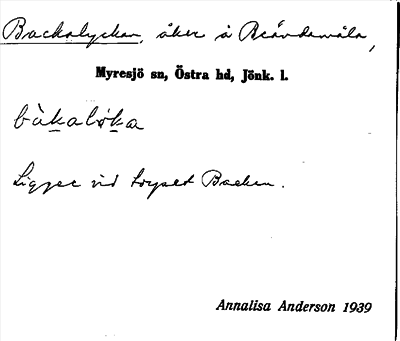 Backalyckan, åker å Brändamåla,
Myresjö sn, Östra hd, Jönk. l.
bàkalẏka
Ligger vid torpet Backen.
Annalisa Anderson 1939